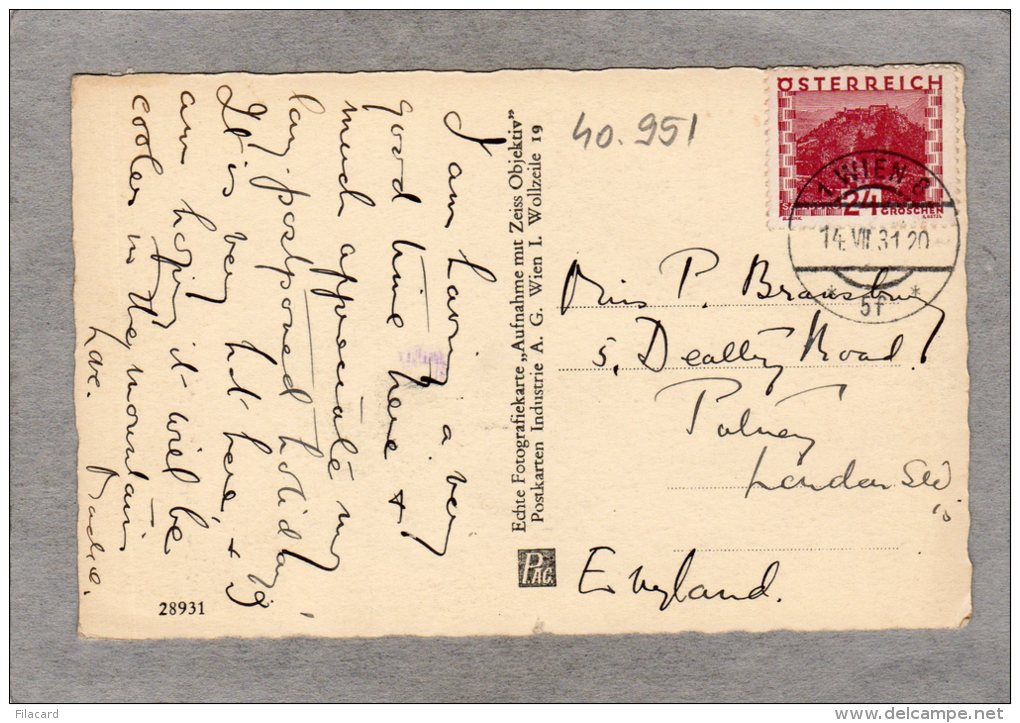 I am having a very
good time here &
much appreciate my
long postponed holiday.
It is very hot here, & I
am hoping it will be
cooler in the mountains
Love.
28931
Echte Fotografiekarte „Aufnahme mit Zeiss Objektiv"
Postkarten Industrie A. G. Wien I. Wollzeile 19
P.AG.
40.951
ÖSTERREICH
24
GROSCHEN
1 WIEN 8
14.VII.31 20
* 5f *
Miss P. Bransbury
5, Road
Putney
London SW
England.
Filacard
www.delcampe.net